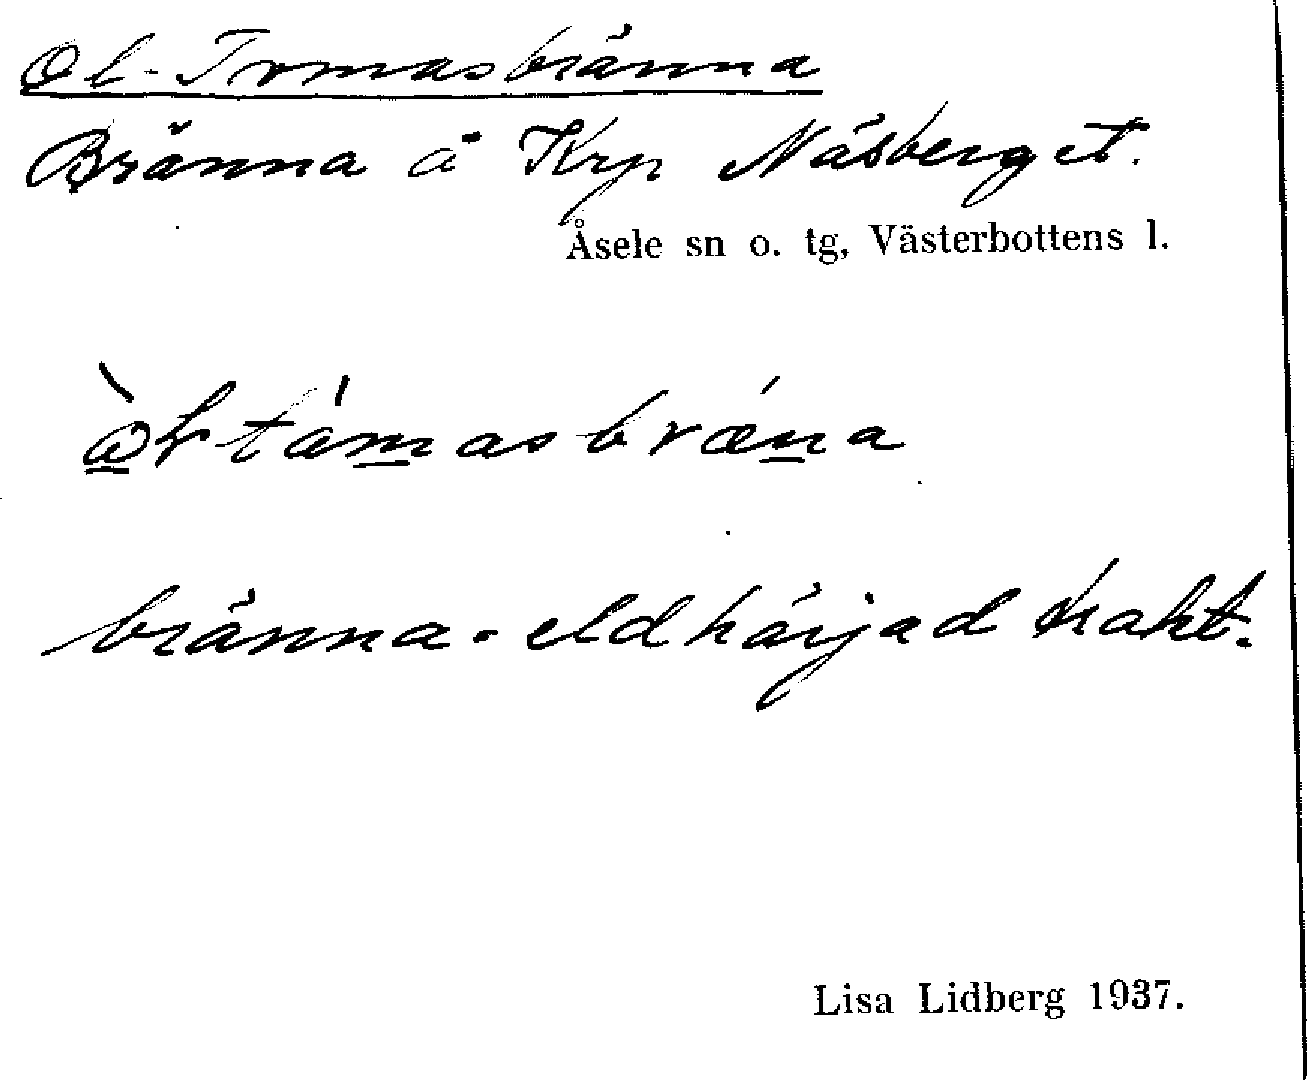 Ol-Tomasbränna
Bränna å Krp Näsberget.
Åsele sn o. tg, Västerbottens l.
bränna - eldhärjad trakt.
Lisa Lidberg 1937.